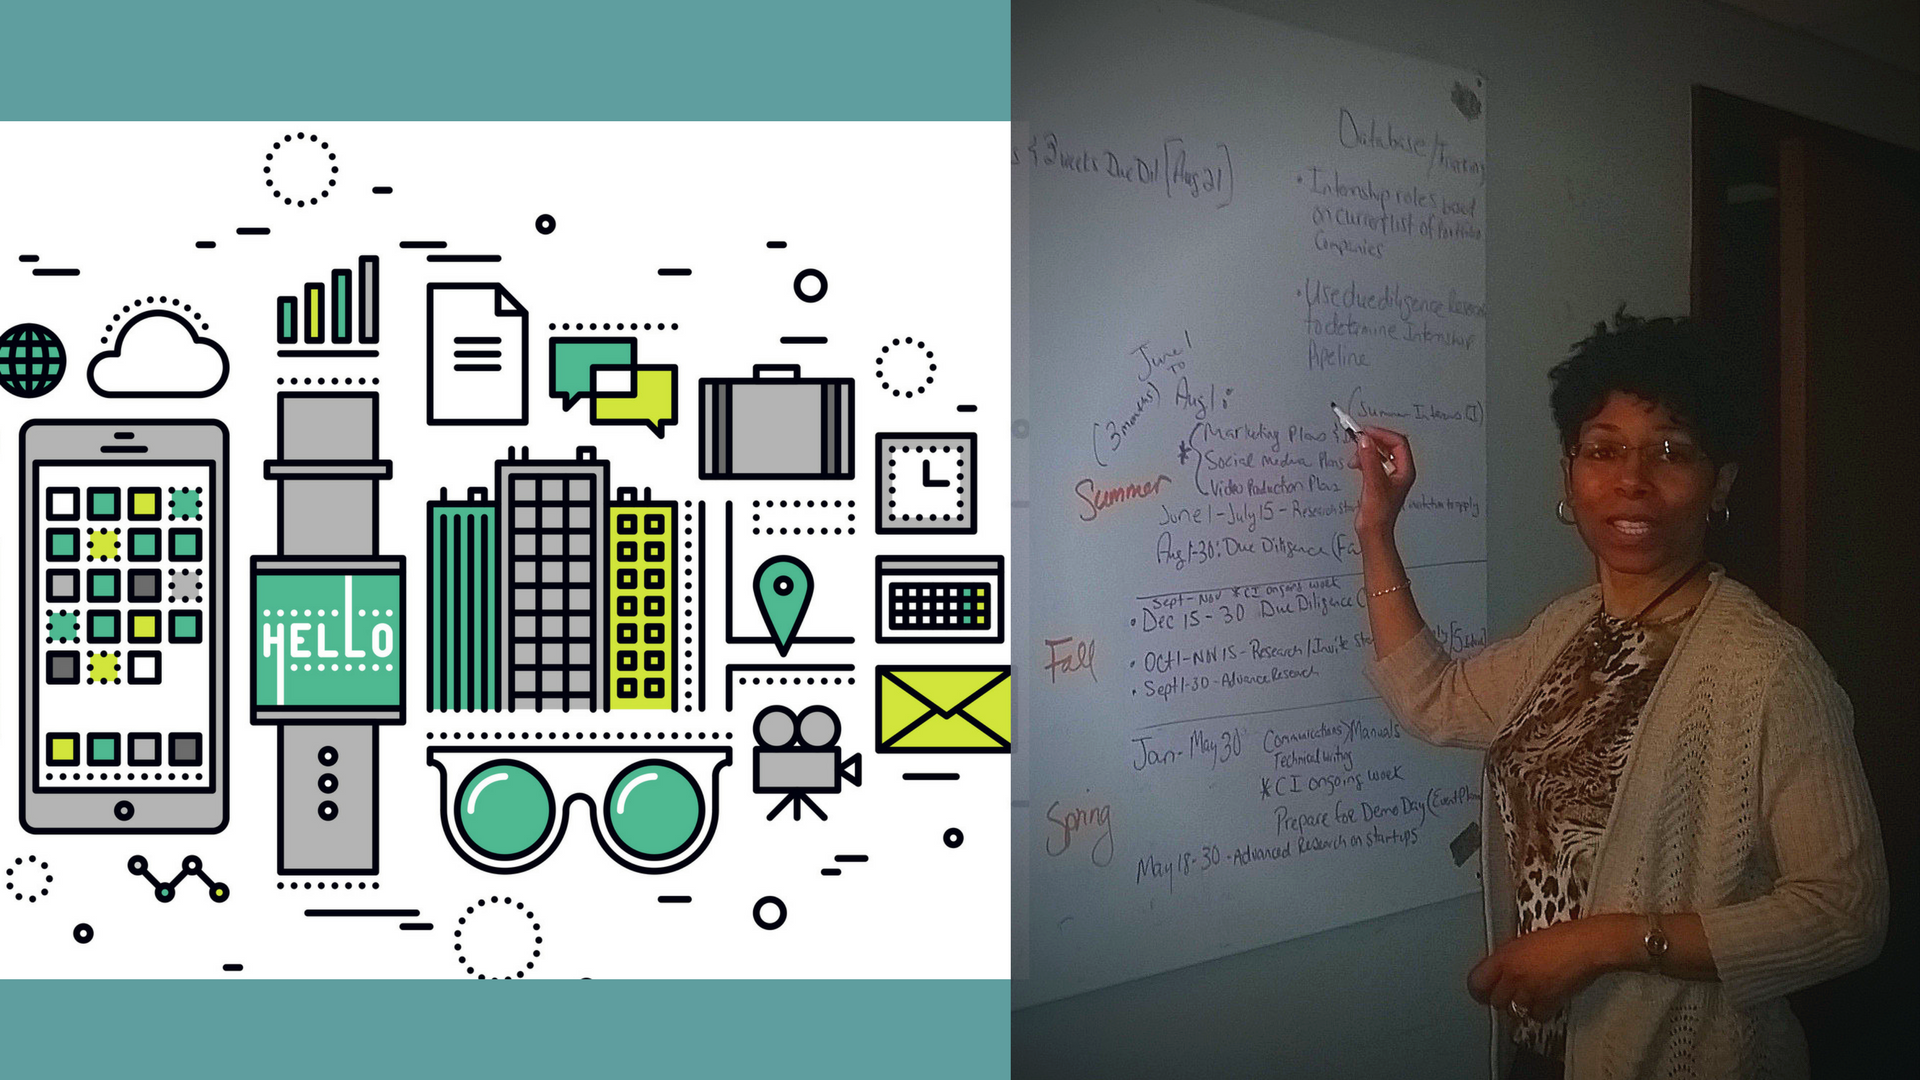 HELLO
weeks Due Dil [Aug 21]
Database/
• Internship roles based
on current list of
Companies
• Use due diligence
to determine Internship
Pipeline
(Summer Interns
June 1
TO
Aug 1:
(3 months)
* Marketing Plans &
Social media Plans
Video Production Plans
Summer
June 1 - July 15 - Research to apply
Aug 1-30: Due Diligence (Fa
Sept - Nov *CI ongoing work
• Dec 15 - 30 Due Diligence (
Fall
• Oct 1 - Nov 15 - Research / Invite
• Sept 1-30 - Advance Research
Jan - May 30 Communications Manuals
Technical writing
*CI ongoing work
Spring
Prepare for Demo Day (Event Plan
May 18-30 - Advanced Research on startups